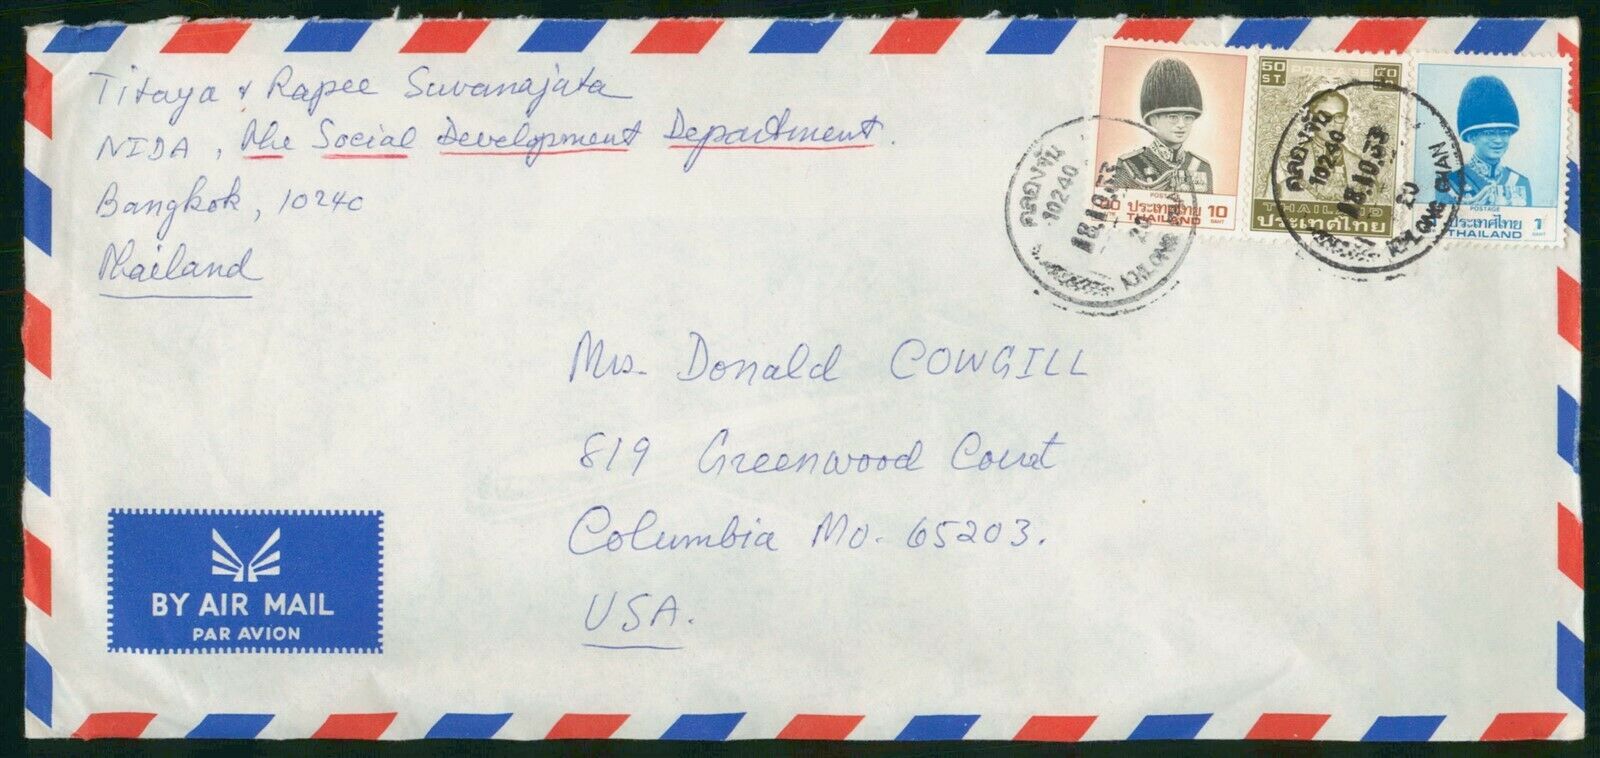 Titaya & Rapee Suvanajata
NIDA, The Social Development Department.
Bangkok, 10240
Thailand
50 ST. POSTAGE ๕๐
THAILAND
ประเทศไทย
POSTAGE
ประเทศไทย 10
THAILAND BAHT
POSTAGE
ประเทศไทย 1
THAILAND BAHT
คลองจั่น
10240
18.10.33
20
KHLONG CHAN
คลองจั่น
10240
18.10.33
20
KHLONG CHAN
Mrs. Donald COWGILL
819 Greenwood Court
Columbia Mo. 65203.
USA.
BY AIR MAIL
PAR AVION